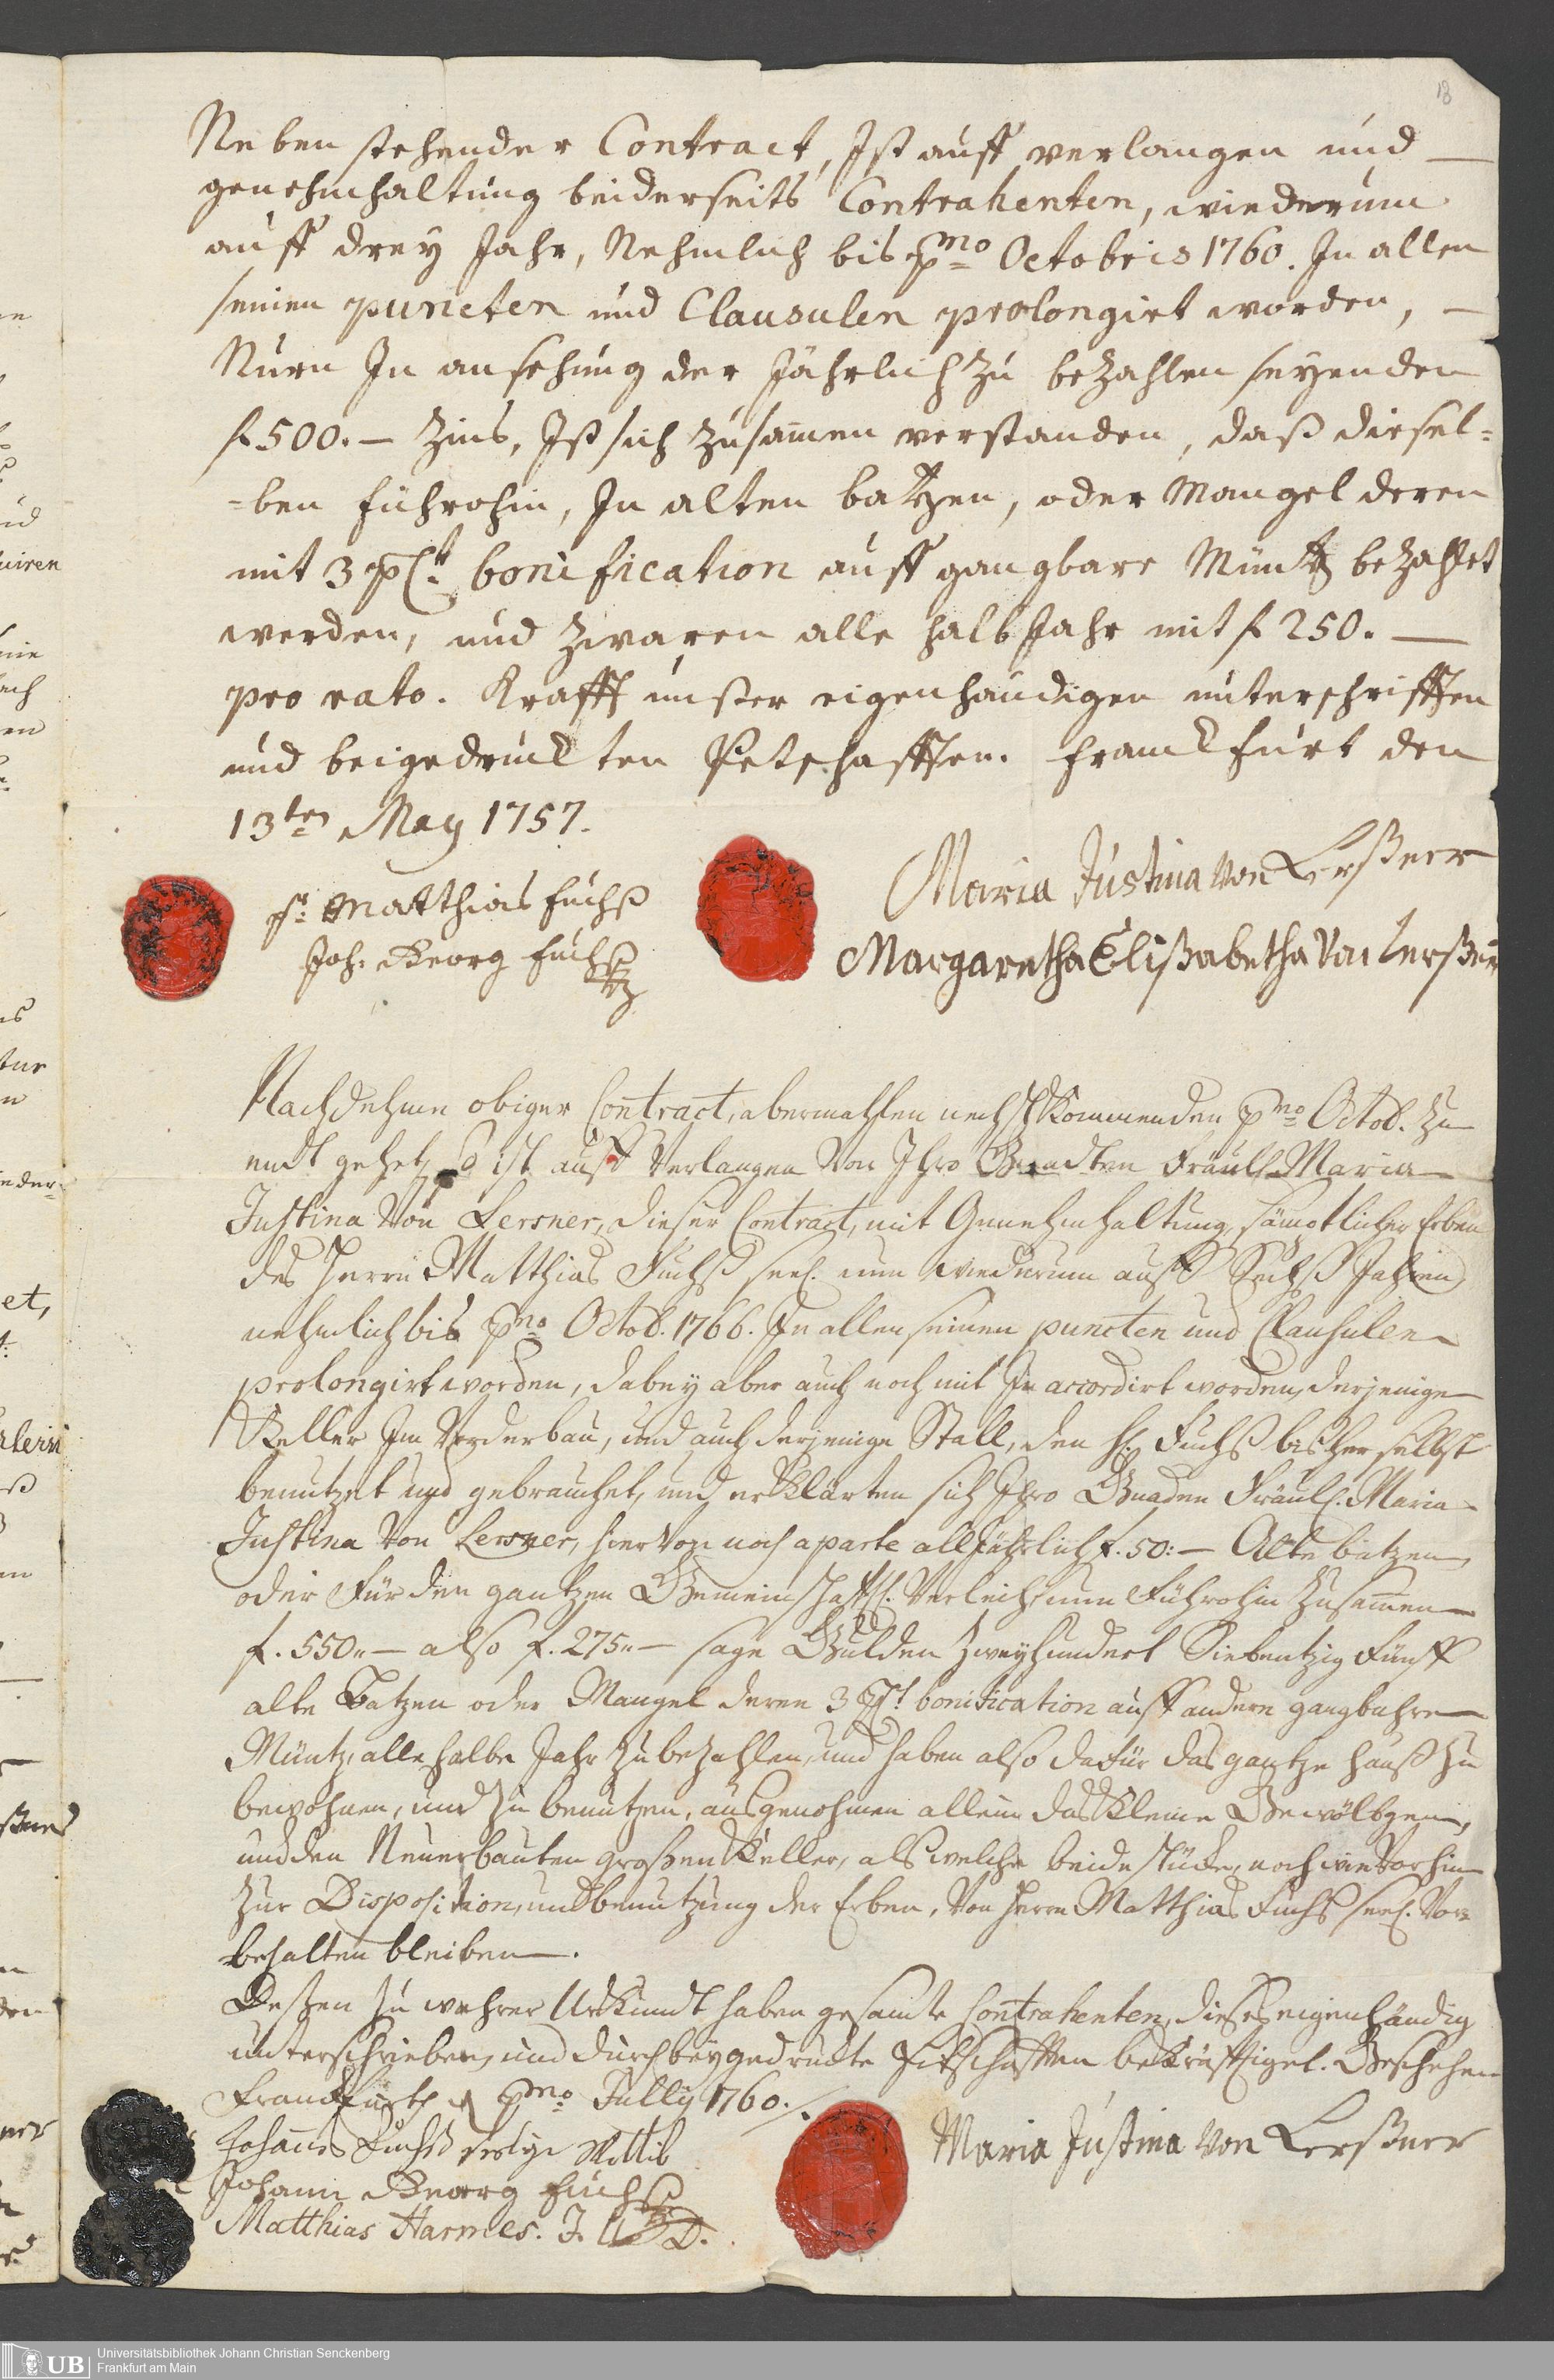 18
Neben stehender Contract, Ist auff verlangen und —
genehmhaltung beiderseits Contrahenten, wiederum
auff drey Jahr, Nehmlich bis pmo Octobris 1760. In allen
seinen puncten und Clausulen prolongirt worden, —
Nurn In ansehung der Jährlich zu bezahlen seyenden
f 500. — Zins, Ist sich zusamen verstanden, daß diesel=
=ben führohin, In alten batzen, oder Mangel deren
mit 3 pCt: bonification auff gangbare Müntz bezahlet
werden, und zwaren alle halb Jahr mit f 250. —
pro rato. Krafft unßer eigenhändigen unterschrifften
und beigedruckten Petschafften. Franckfurt den
13ten May 1757.
Matthias Fuchß
Joh: Georg Fuchß
Maria Justina von Lerßner
Margaretha Elißabetha Von Lerßner
Nachdehme obiger Contract, abermahlen nechstkommenden pmo Octob. zu
endt gehet, so ist auff Verlangen Von Ihro Gnadten Fräul. Maria
Justina Von Lersner, dieser Contract, mit Genehmhaltung, sämptlicher Erben
des Herrn Matthias Fuchß seel. nun wiederum auff Sechß Jahren
nehmlich bis pmo Octob. 1766. In allen seinen puncten und Clausulen
prolongirt worden, dabey aber auch noch mit In accordirt worden, derjenige
Keller Im Vorderbau, und auch derjenige Stall, den H. Fuchß bisher selbst
benutzet und gebrauchet, und erklärten sich Ihro Gnaden Fräul. Maria
Justina Von Lersner, hiervon noch aparte alljährlich f. 50:— Alte batzen,
oder Für den gantzen Gemeinschafftl. Verleih nun Führohin zusamen
f. 550.— also f. 275.— sage Gulden Zweyhundert Siebentzig Fünff
alte Batzen oder Mangel deren 3 pCt. bonification auff andere gangbahre
Müntz, alle halbe Jahr zu bezahlen, und haben also dafür das gantze Hauß zu
bewohnen, und zu benutzen, ausgenohmen allein das Kleine Gewölbgen,
und den Neuerbauten großen Keller, als welche beide stücke, noch wie Vorhin
zur Disposition, und benutzung der Erben, Von Herrn Matthias Fuchß seel. Vor=
behalten bleiben.
Deßen zu wahrer Uhrkundt haben gesamte Contrahenten, dieses eigenhändig
unterschrieben, und durch beygedruckte Pitschafften bekräfftiget. Geschehen
Franckfurth d pmo Jully 1760.
Johannes Fuchß Wittib
Johann Georg Fuchß
Matthias Harmes. J. U. D.
Maria Justina von Lerßner
UB
Universitätsbibliothek Johann Christian Senckenberg
Frankfurt am Main